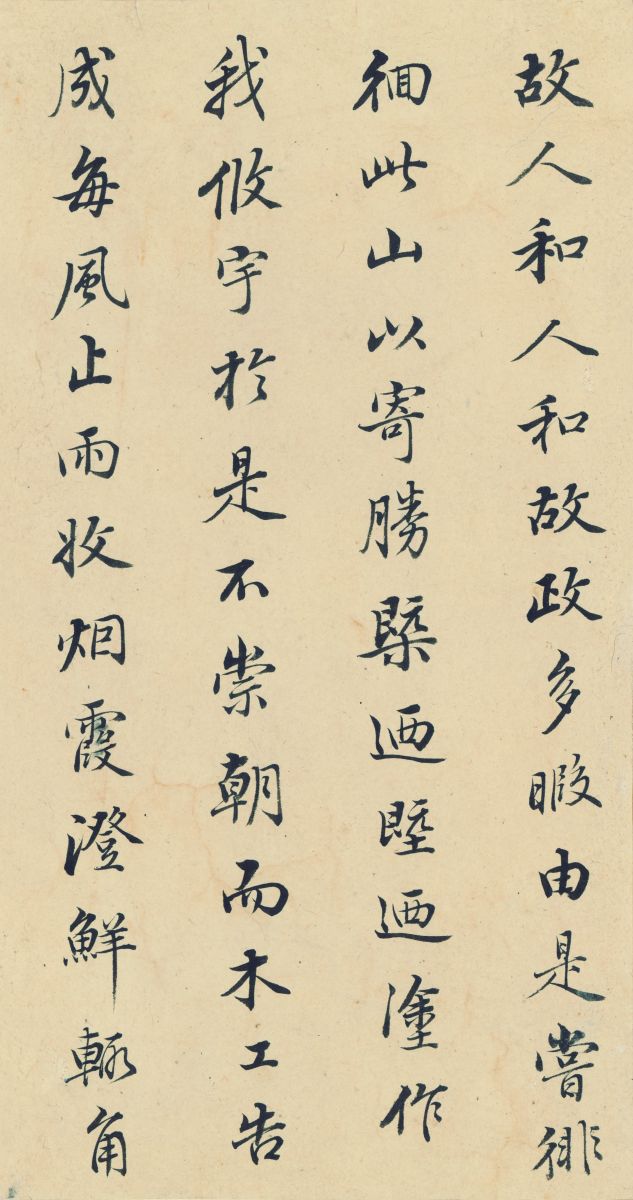 故人和人和故政多暇由是嘗徘
徊此山以寄勝槩迺塈迺塗作
我攸宇於是不崇朝而木工告
成每風止雨收烟霞澄鮮輙角